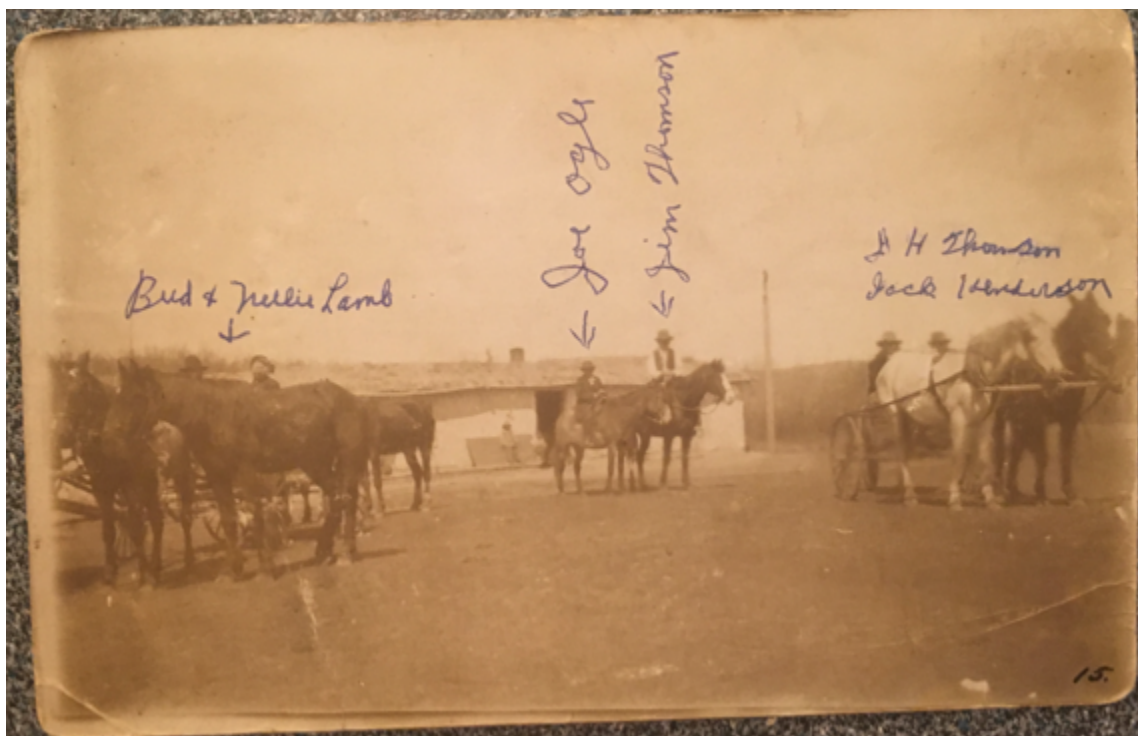 Bud & Nellie Lamb
Joe Ogle
Jim Thomson
J H Thomson
Jack Henderson
15.